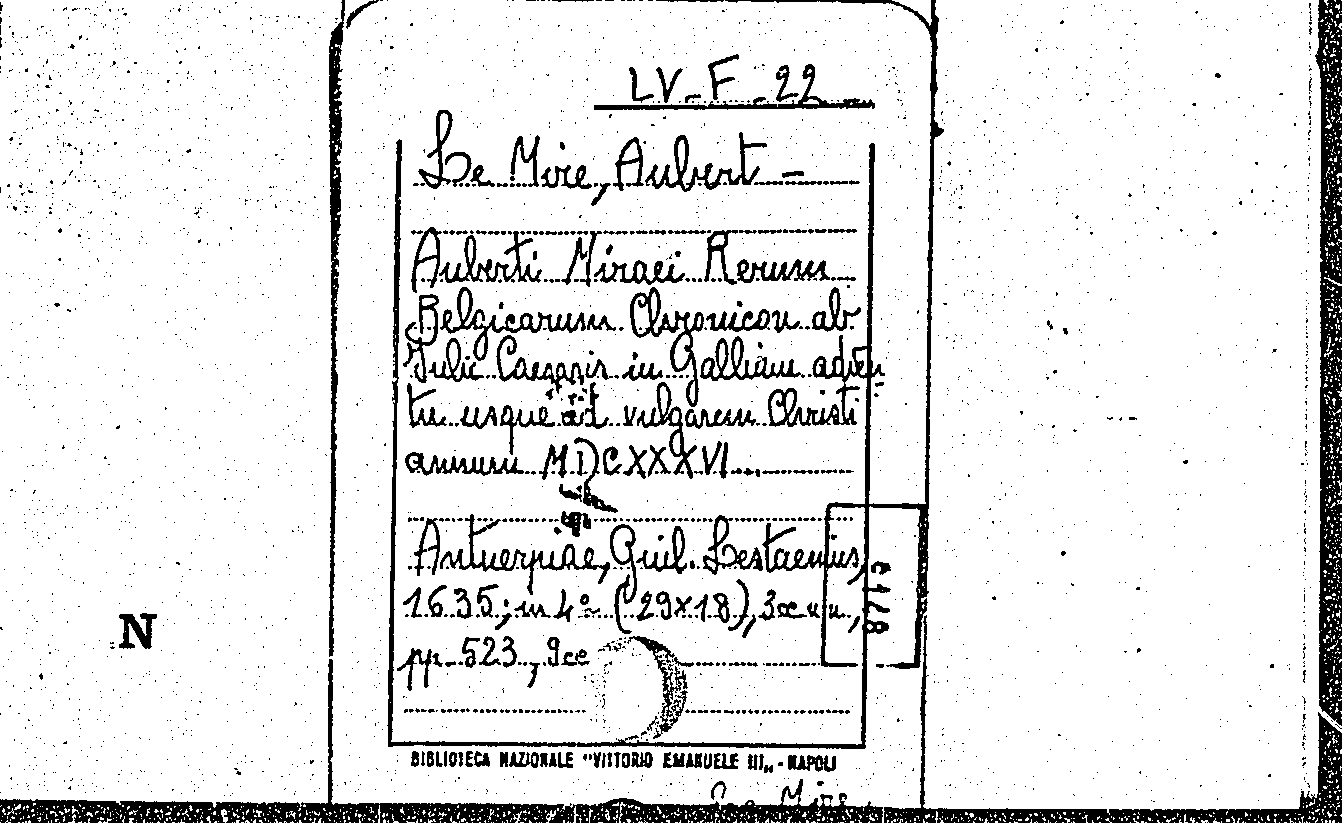 LV-F-22
Le Mire, Aubert -
Auberti Miraei Rerum
Belgicarum Chronicon ab
Julii Caesaris in Galliam adven
tu usque ad vulgarem Christi
annum MDCXXXVI...
Antuerpiae, Guil. Lestaenius,
1635; in 4° (29x18), 3cc nn,
pp. 523, 9cc
N
BIBLIOTECA NAZIONALE "VITTORIO EMANUELE III" - NAPOLI